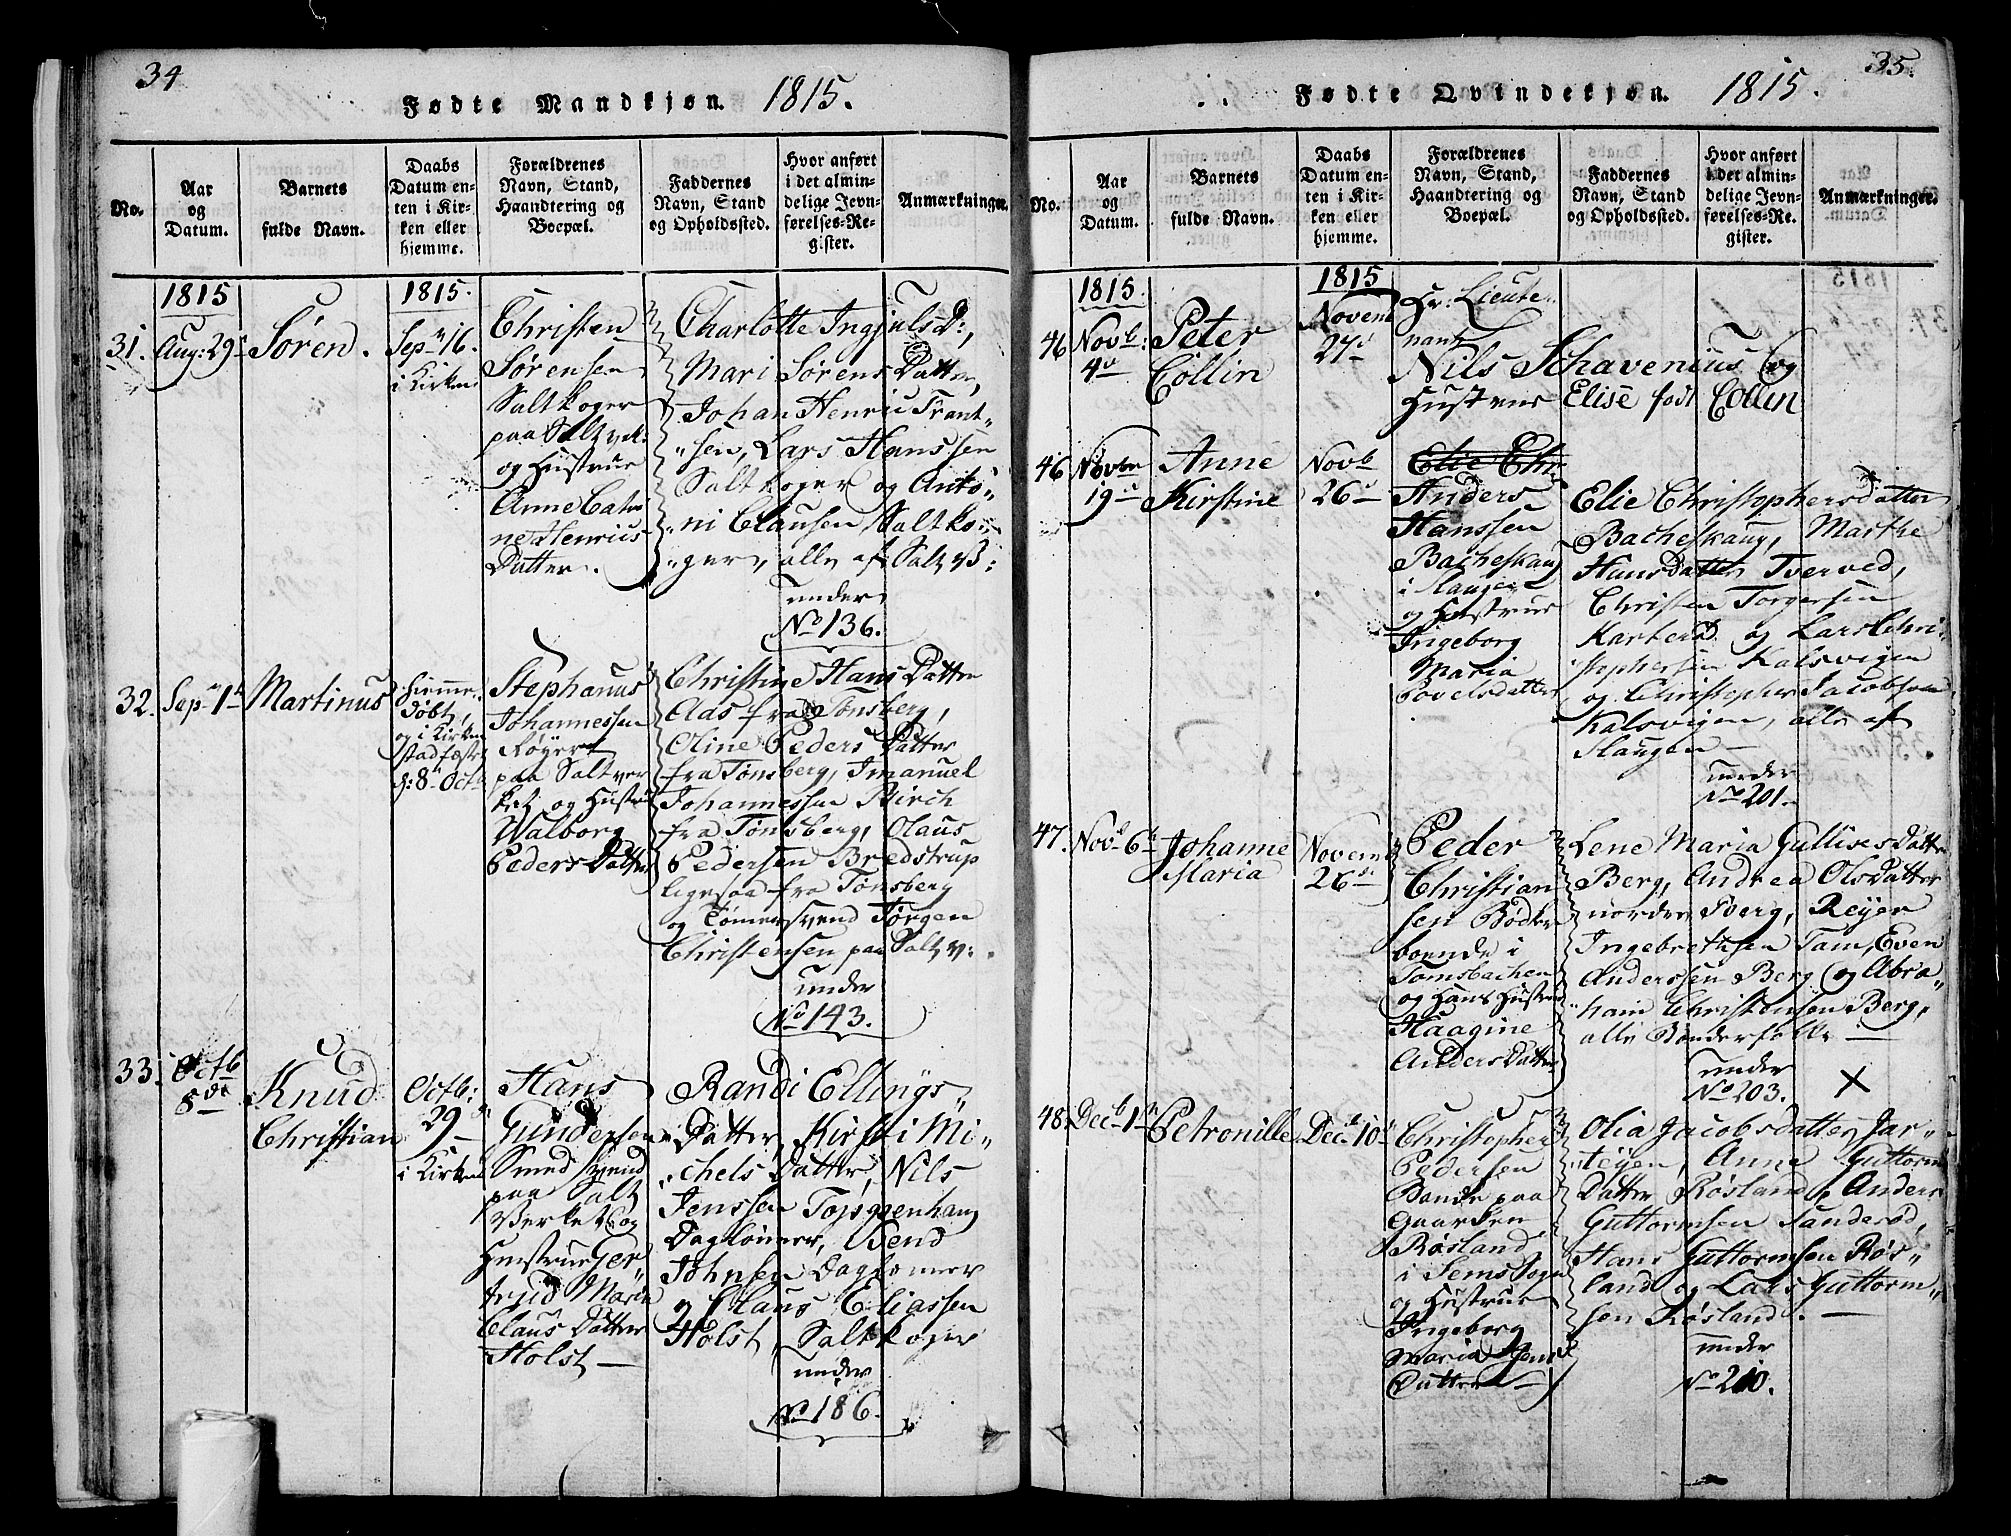 34
Fødte Mandkjøn. 1815.
No.
Aar
og
Datum.
Barnets
fulde Navn.
Daabs
Datum en-
ten i Kir-
ken eller
hjemme.
Forældrenes
Navn, Stand,
Haandtering og
Boepæl.
Faddernes
Navn, Stand
og Opholdssted.
Hvor anført
i det almin-
delige Jevn-
førelses-Re-
gister.
Anmærkninger.
1815
31. Aug: 29
Søren.
1815.
Sepr 16.
i Kirken
Christen
Sørensen
Saltkoger
paa Saltvk:
og Hustrue
Anne Catri
ne Henrics
Datter.
Charlotte Ingjulsd:,
Mari Sørens Datter,
Johan Henric Frant-
"sen, Lars Hanssen
Saltkoger og Anto,,
ni Clausen Saltko,,
"ger, alle af Salt v3:
under
No 136.
32. Sepr 1
Martinus
hjemme
døbt,
og i Kirken
stadfæstet
d: 8 Octb
Stephanus
Johannessen
Røyert
paa Saltver
ket og Hustrue
Walborg
Peders Datter
Christine Hans Datter
Aas fra Tønsberg,
Oline Peders Datter
fra Tønsberg, Imanuel
Johannessen Birch
fra Tønsberg, Olaus
Pedersen Bredstrup
ligesaa fra Tønsberg
og Tømersvend Jørgen
Christensen paa Salt v:.
under
No 143.
33. Octb
8de
Knud
Christian
Octb:
29
i Kirken
Hans
Gundersen
Smed svend
paa Salt
Verket og
Hustrue Ger
trud Marie
Claus Datter
Holst
Randi Ellings,,
Datter, Kirsti Mi,,
"chels Datter, Nils
Jenssen Tojsggenhaug
Dagløner, Bend
Johnsen Dagloner
og Claus Eliassen
Holst, Saltkoger
under
No 186.
35.
Fødte Qvindekjøn. 1815.
No.
Aar
og
Datum.
Barnets
fulde Navn.
Daabs
Datum en-
ten i Kir-
ken eller
hjemme.
Forældrenes
Navn, Stand,
Haandtering og
Boepæl.
Faddernes
Navn, Stand
og Opholdssted.
Hvor anført
i det almin-
delige Jevn-
førelses-Re-
gister.
Anmærkninger.
1815.
46 Novb:
4
Peter
Collin
1815
Novem
27
Hr: Lieute-
nant
Nils Schavenius og
Hustrue Elise født Collin
46 Novbr
19
Anne
Kirstine
Novb
26
Elie Chr
Anders
Hanssen
Bacheskaug
i Slaugen
og Hustrue
Ingeborg
Maria
Povelsdatter
Elie Christophersdatter
Bacheskaug, Marthe
Hansdatter Tverved,
Christen Torgersen
Karterød og Lars Chri-
stophersen Kalsvigen
og Christopher Jacobsen
Kalsvigen, alle af
Slaugen
under
No 201.
47. Novb 6
Johanne
Maria
Novem
26
Peder
Christian
sen Bødker
boende i
Tomsbachen
og Hans Hustrue
Haagine
Anders Datter
Lene Maria Gullises Datter
Berg, Andrea Ols Datter
nordre Berg, Reyer
Ingebrethsen Tam, Even
Anderssen Berg og Abra,,
"ham Christensen Berg,
alle Bønderfolk
under
No 203. X
48. Decb 1
Petronille
Decb 10
Christopher
Pedersen
Bonde paa
Gaarden
Røsland
i Sems Sogn
og Hustrue
Ingeborg
Maria Jens
Datter
Olia Jacobsdatter Jar-
"teyen, Anne Guttorm
Datter Røsland, Anders
Guttormsen Sanderød,
Hans Guttormsen Røs,,
land og Lars Guttorm,,
sen Røsland.
under
No 210.